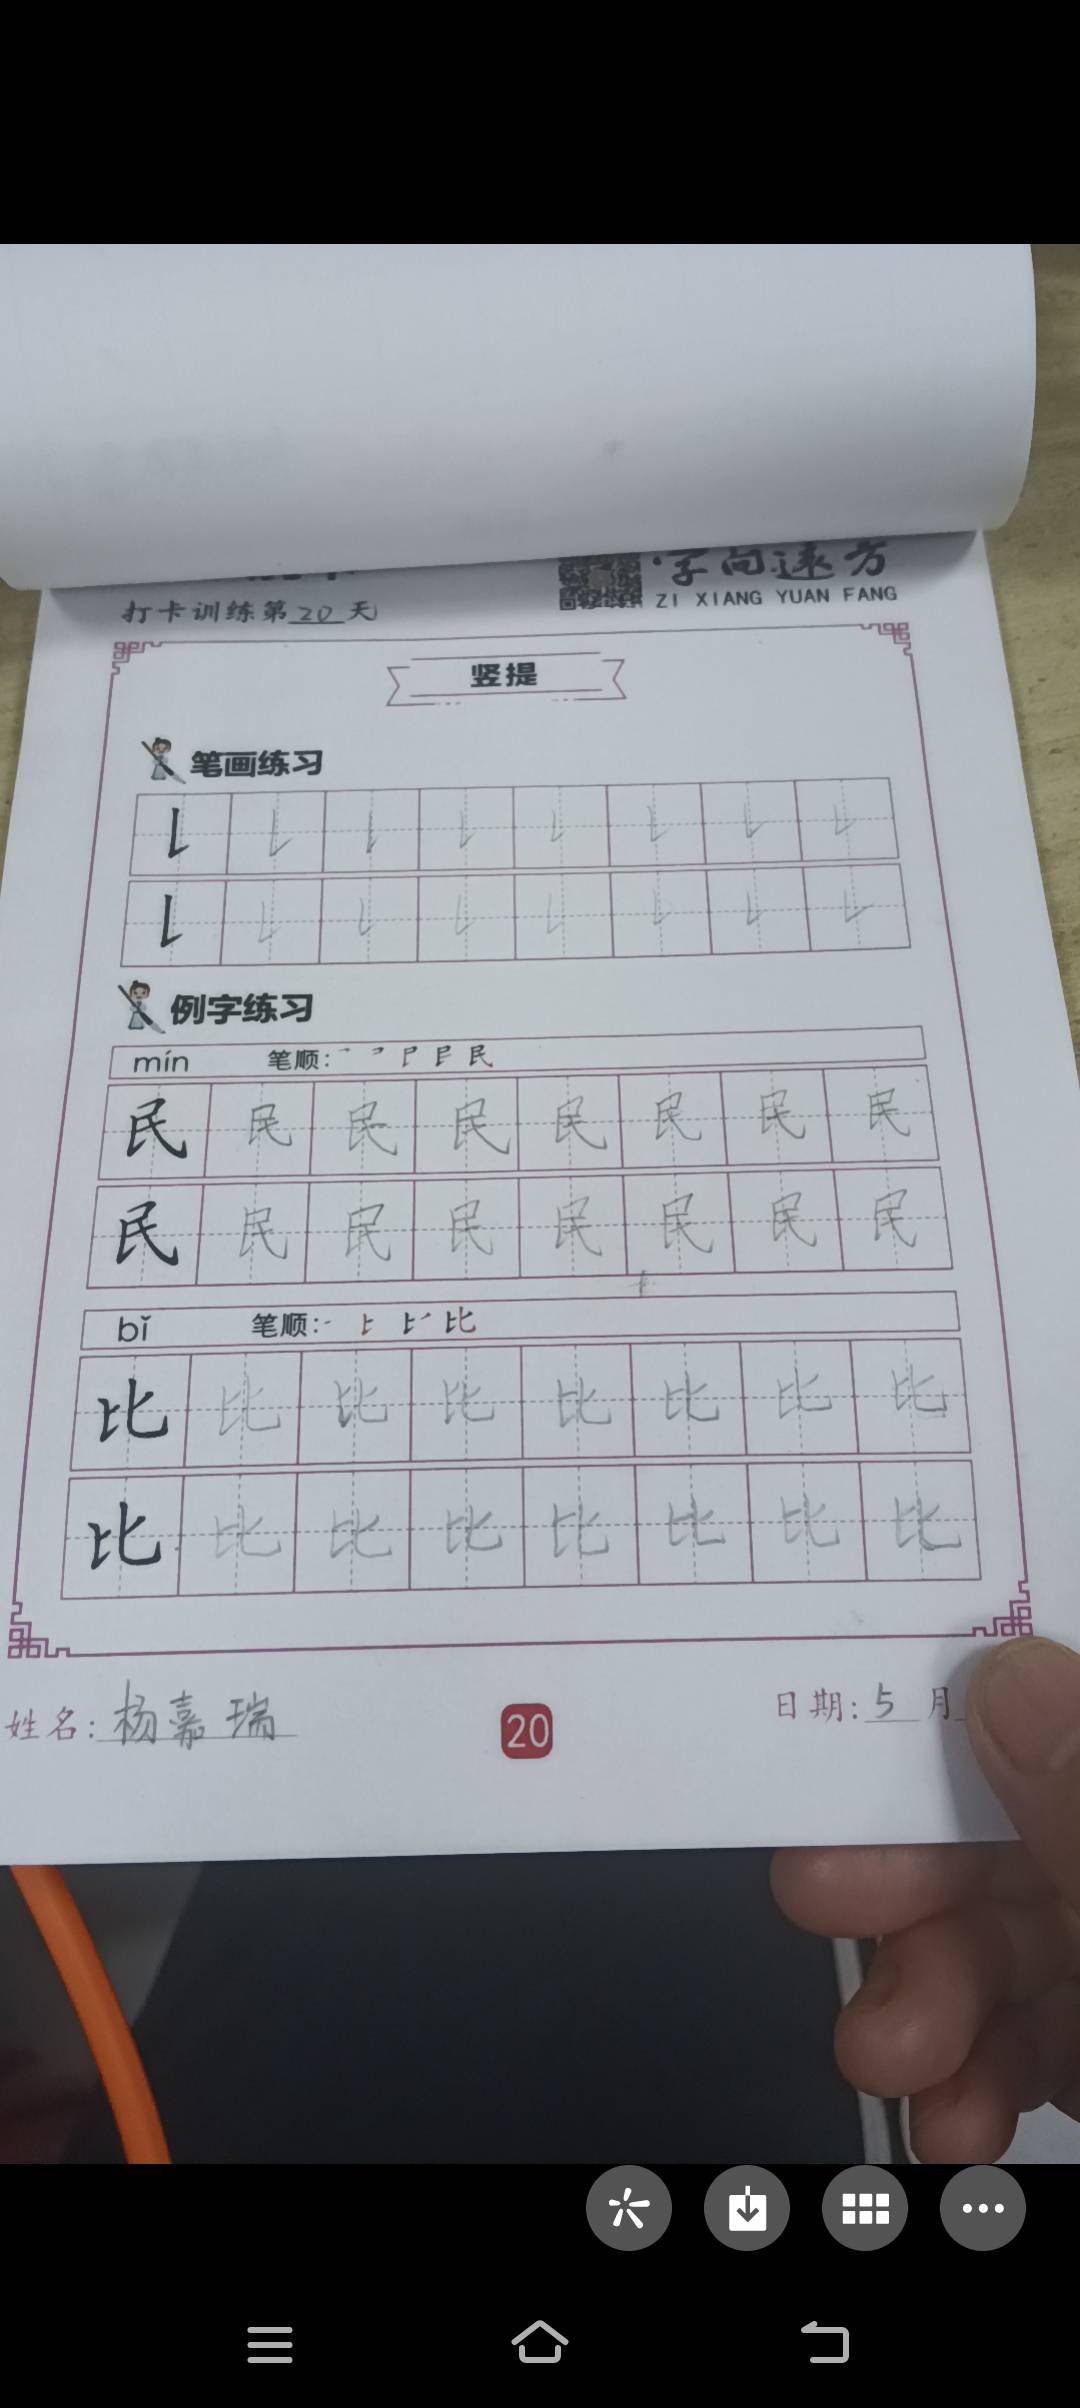 字向远方
打卡训练第20天
ZI XIANG YUAN FANG
竖提
笔画练习
例字练习
mín 笔顺:
民 民 民 民 民 民 民 民
民 民 民 民 民 民 民 民
bǐ 笔顺:
比 比 比 比 比 比 比 比
比 比 比 比 比 比 比 比
姓名:杨嘉瑞
20
日期:5月